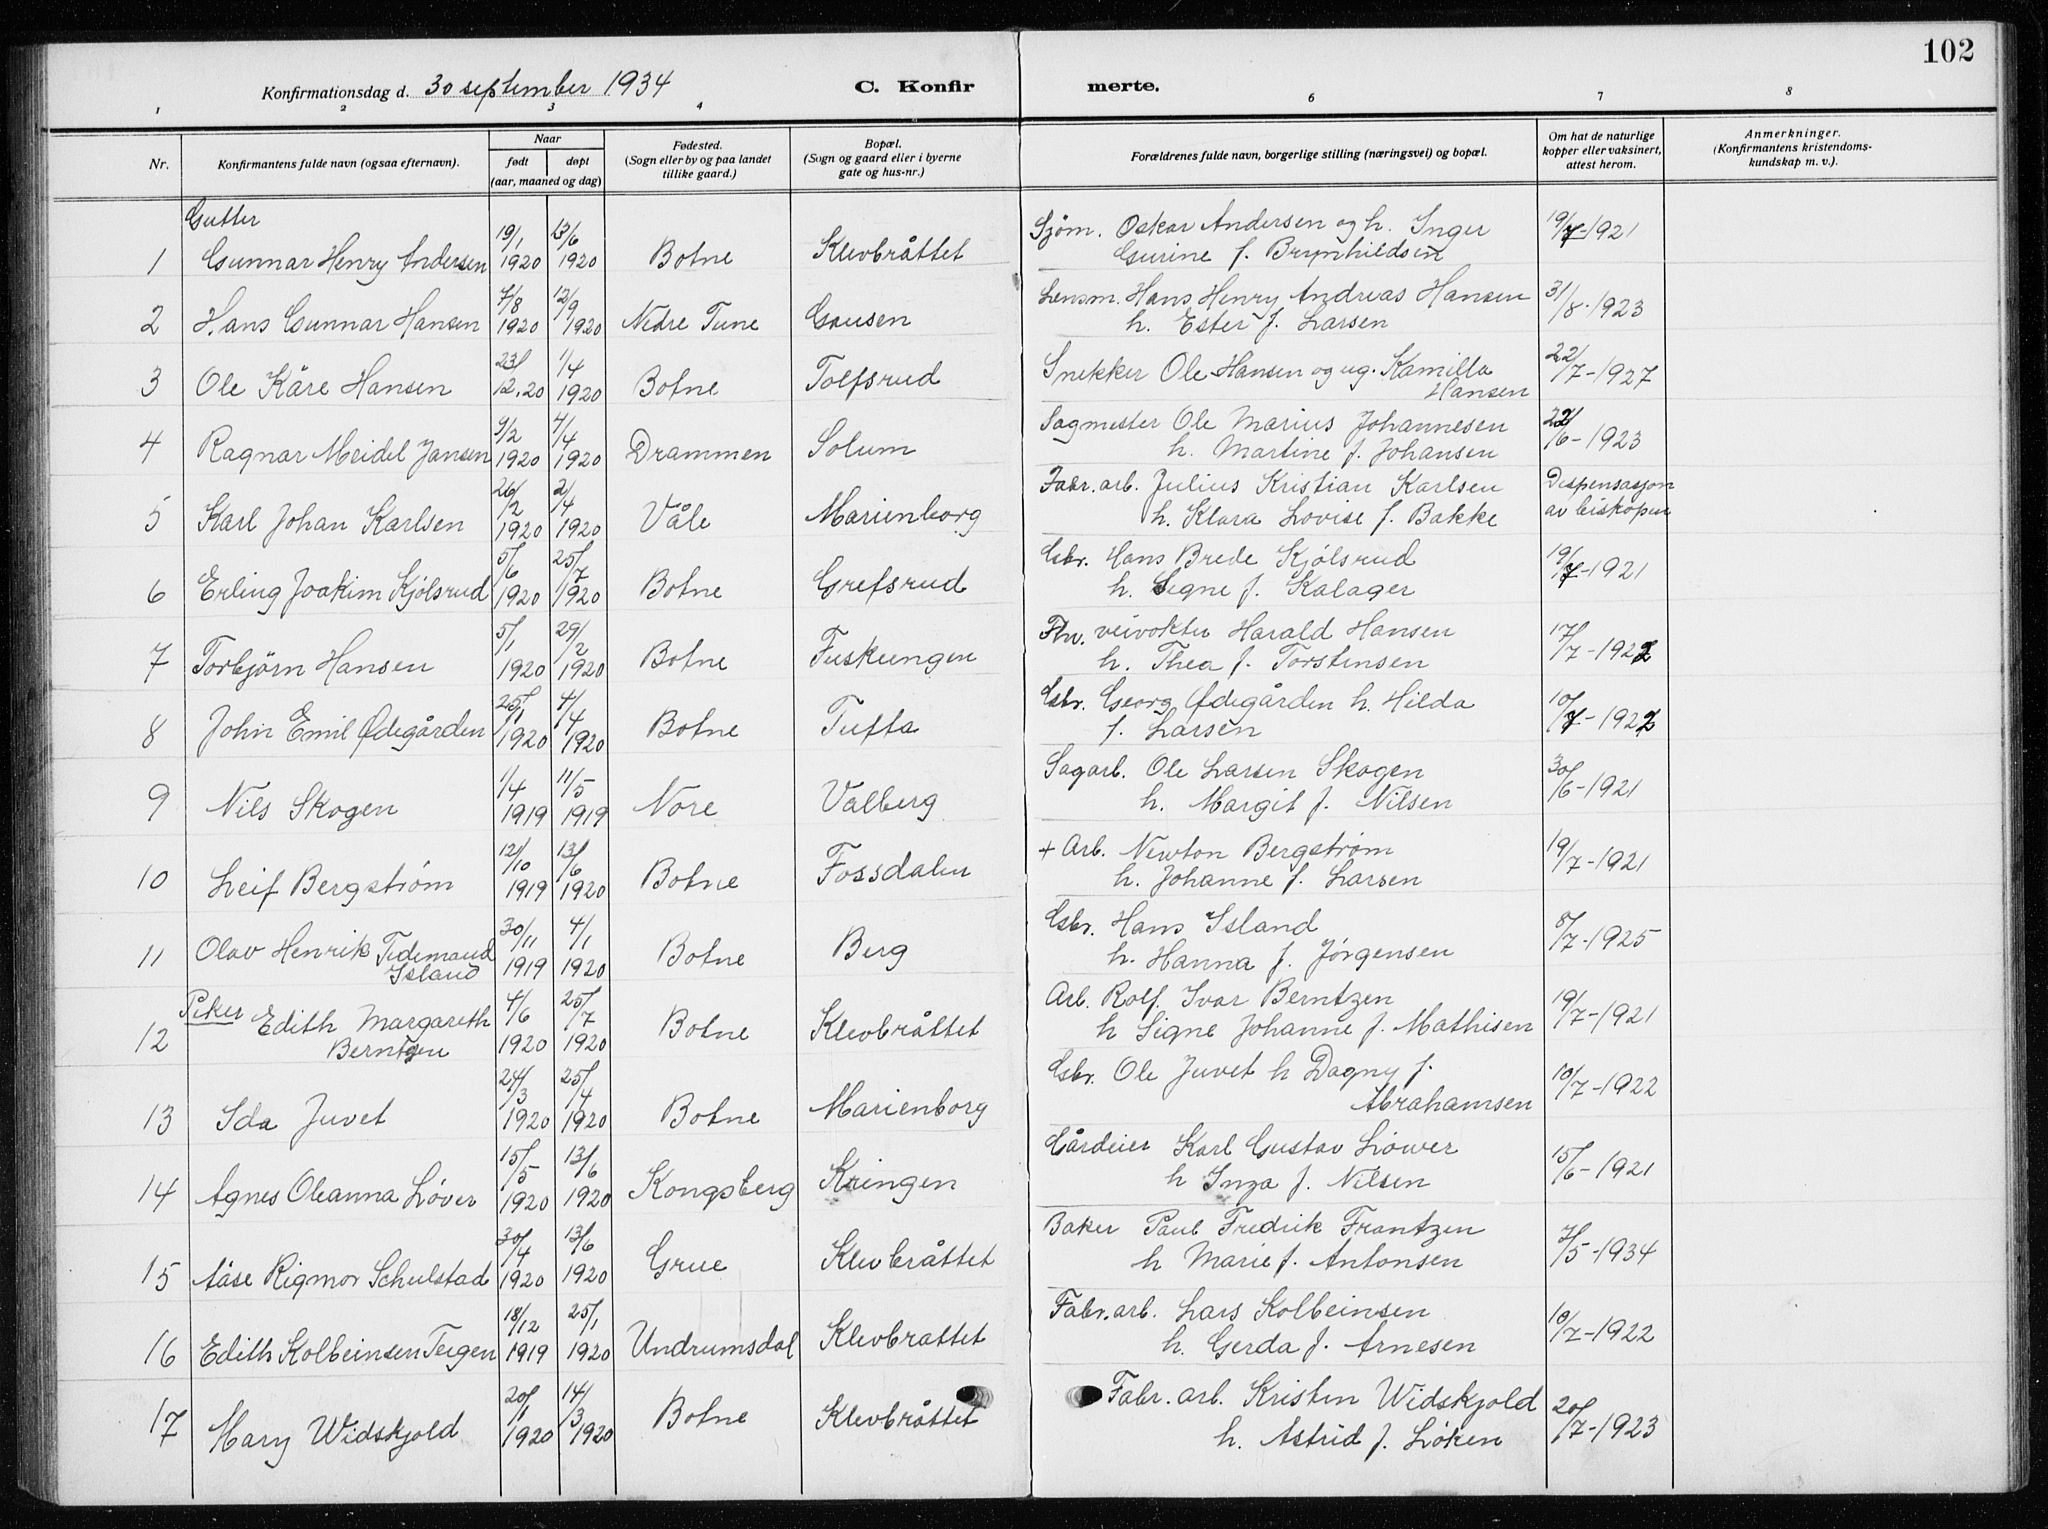 102
Konfirmationsdag d. 30 september 1934 C. Konfir merte.
1 2 3 4 6 7 8
Nr. Konfirmantens fulde navn (ogsaa efternavn). Naar født døpt (aar, maaned og dag) Fødested. (Sogn eller by og paa landet tillike gaard.) Bopæl. (Sogn og gaard eller i byerne gate og hus-nr.) Forældrenes fulde navn, borgerlige stilling (næringsvei) og bopæl. Om hat de naturlige kopper eller vaksinert, attest herom. Anmerkninger. (Konfirmantens kristendoms-kundskap m. v.).
Gutter
1 Gunnar Henry Andersen 19/1 1920 13/6 1920 Botne Klevbråttet Sjøm. Oskar Andersen og h. Inger 19/7-1921
Gurine f. Brynhildsen
2 Hans Gunnar Hansen 7/8 1920 12/9 1920 Nedre Tune Gausen Lensm. Hans Henry Andreas Hansen 31/8-1923
h. Ester f. Larsen
3 Ole Kåre Hansen 23/12.20 1/4 1920 Botne Tolfsrud Snekker Ole Hansen og ug. Kamilla 22/7-1927
Hansen
4 Ragnar Meidel Jansen 9/2 1920 4/4 1920 Drammen Solum Sagmester Ole Marius Johannesen 22/6-1923
h. Martine f. Johansen
5 Karl Johan Karlsen 26/2 1920 2/4 1920 Våle Marienborg Fabr. arb. Julius Kristian Karlsen Dispensasjon
h. Klara Lovise f. Bakke av biskopen
6 Erling Joakim Kjølsrud 5/6 1920 25/7 1920 Botne Grefsrud Gbr. Hans Brede Kjølsrud 19/7-1921
h. Signe f. Kalager
7 Torbjørn Hansen 5/1 1920 29/2 1920 Botne Fuskeengen Fhv. veivokter Harald Hansen 17/7-1922
h. Thea f. Torstensen
8 John Emil Ødegården 25/1 1920 4/4 1920 Botne Tufta Gbr. Georg Ødegården h. Hilda 10/7-1922
f. Larsen
9 Nils Skogen 1/4 1919 11/5 1919 Nore Valberg Sagarb. Ole Larsen Skogen 30/6-1921
h. Margit f. Nilsen
10 Leif Bergstrøm 12/10 1919 13/6 1920 Botne Fossdalen + Arb. Newton Bergstrøm 19/7-1921
h. Johanne f. Larsen
11 Olav Henrik Tidemand 30/11 1919 4/1 1920 Botne Berg Gbr. Hans Island 8/7-1925
Island h. Hanna f. Jørgensen
Piker
12 Edith Margareth 4/6 1920 25/7 1920 Botne Klevbråttet Arb. Rolf Ivar Berntzen 19/7-1921
Berntzen h Signe Johanne f. Mathisen
13 Ida Juvet 24/3 1920 25/4 1920 Botne Marienborg Gbr. Ole Juvet h Dagny f. 10/7-1922
Abrahamsen
14 Agnes Oleanna Løver 15/5 1920 13/6 1920 Kongsberg Kringen Gårdeier Karl Gustav Løwer 15/6-1921
h Inga f. Nilsen
15 Aase Rigmor Schulstad 30/4 1920 13/6 1920 Grue Klevbråttet Baker Paul Fredrik Frantzen 7/5-1934
h Marie f. Antonsen
16 Edith Kolbeinsen Teigen 18/12 1919 25/1 1920 Undrumsdal Klevbrattet Fabr. arb. Lars Kolbeinsen 10/7-1922
h. Gerda f. Arnesen
17 Mary Widskjold 20/1 1920 14/3 1920 Botne Klevbråttet Fabr. arb. Kristen Widskjold 20/7-1923
h. Astrid f. Løken